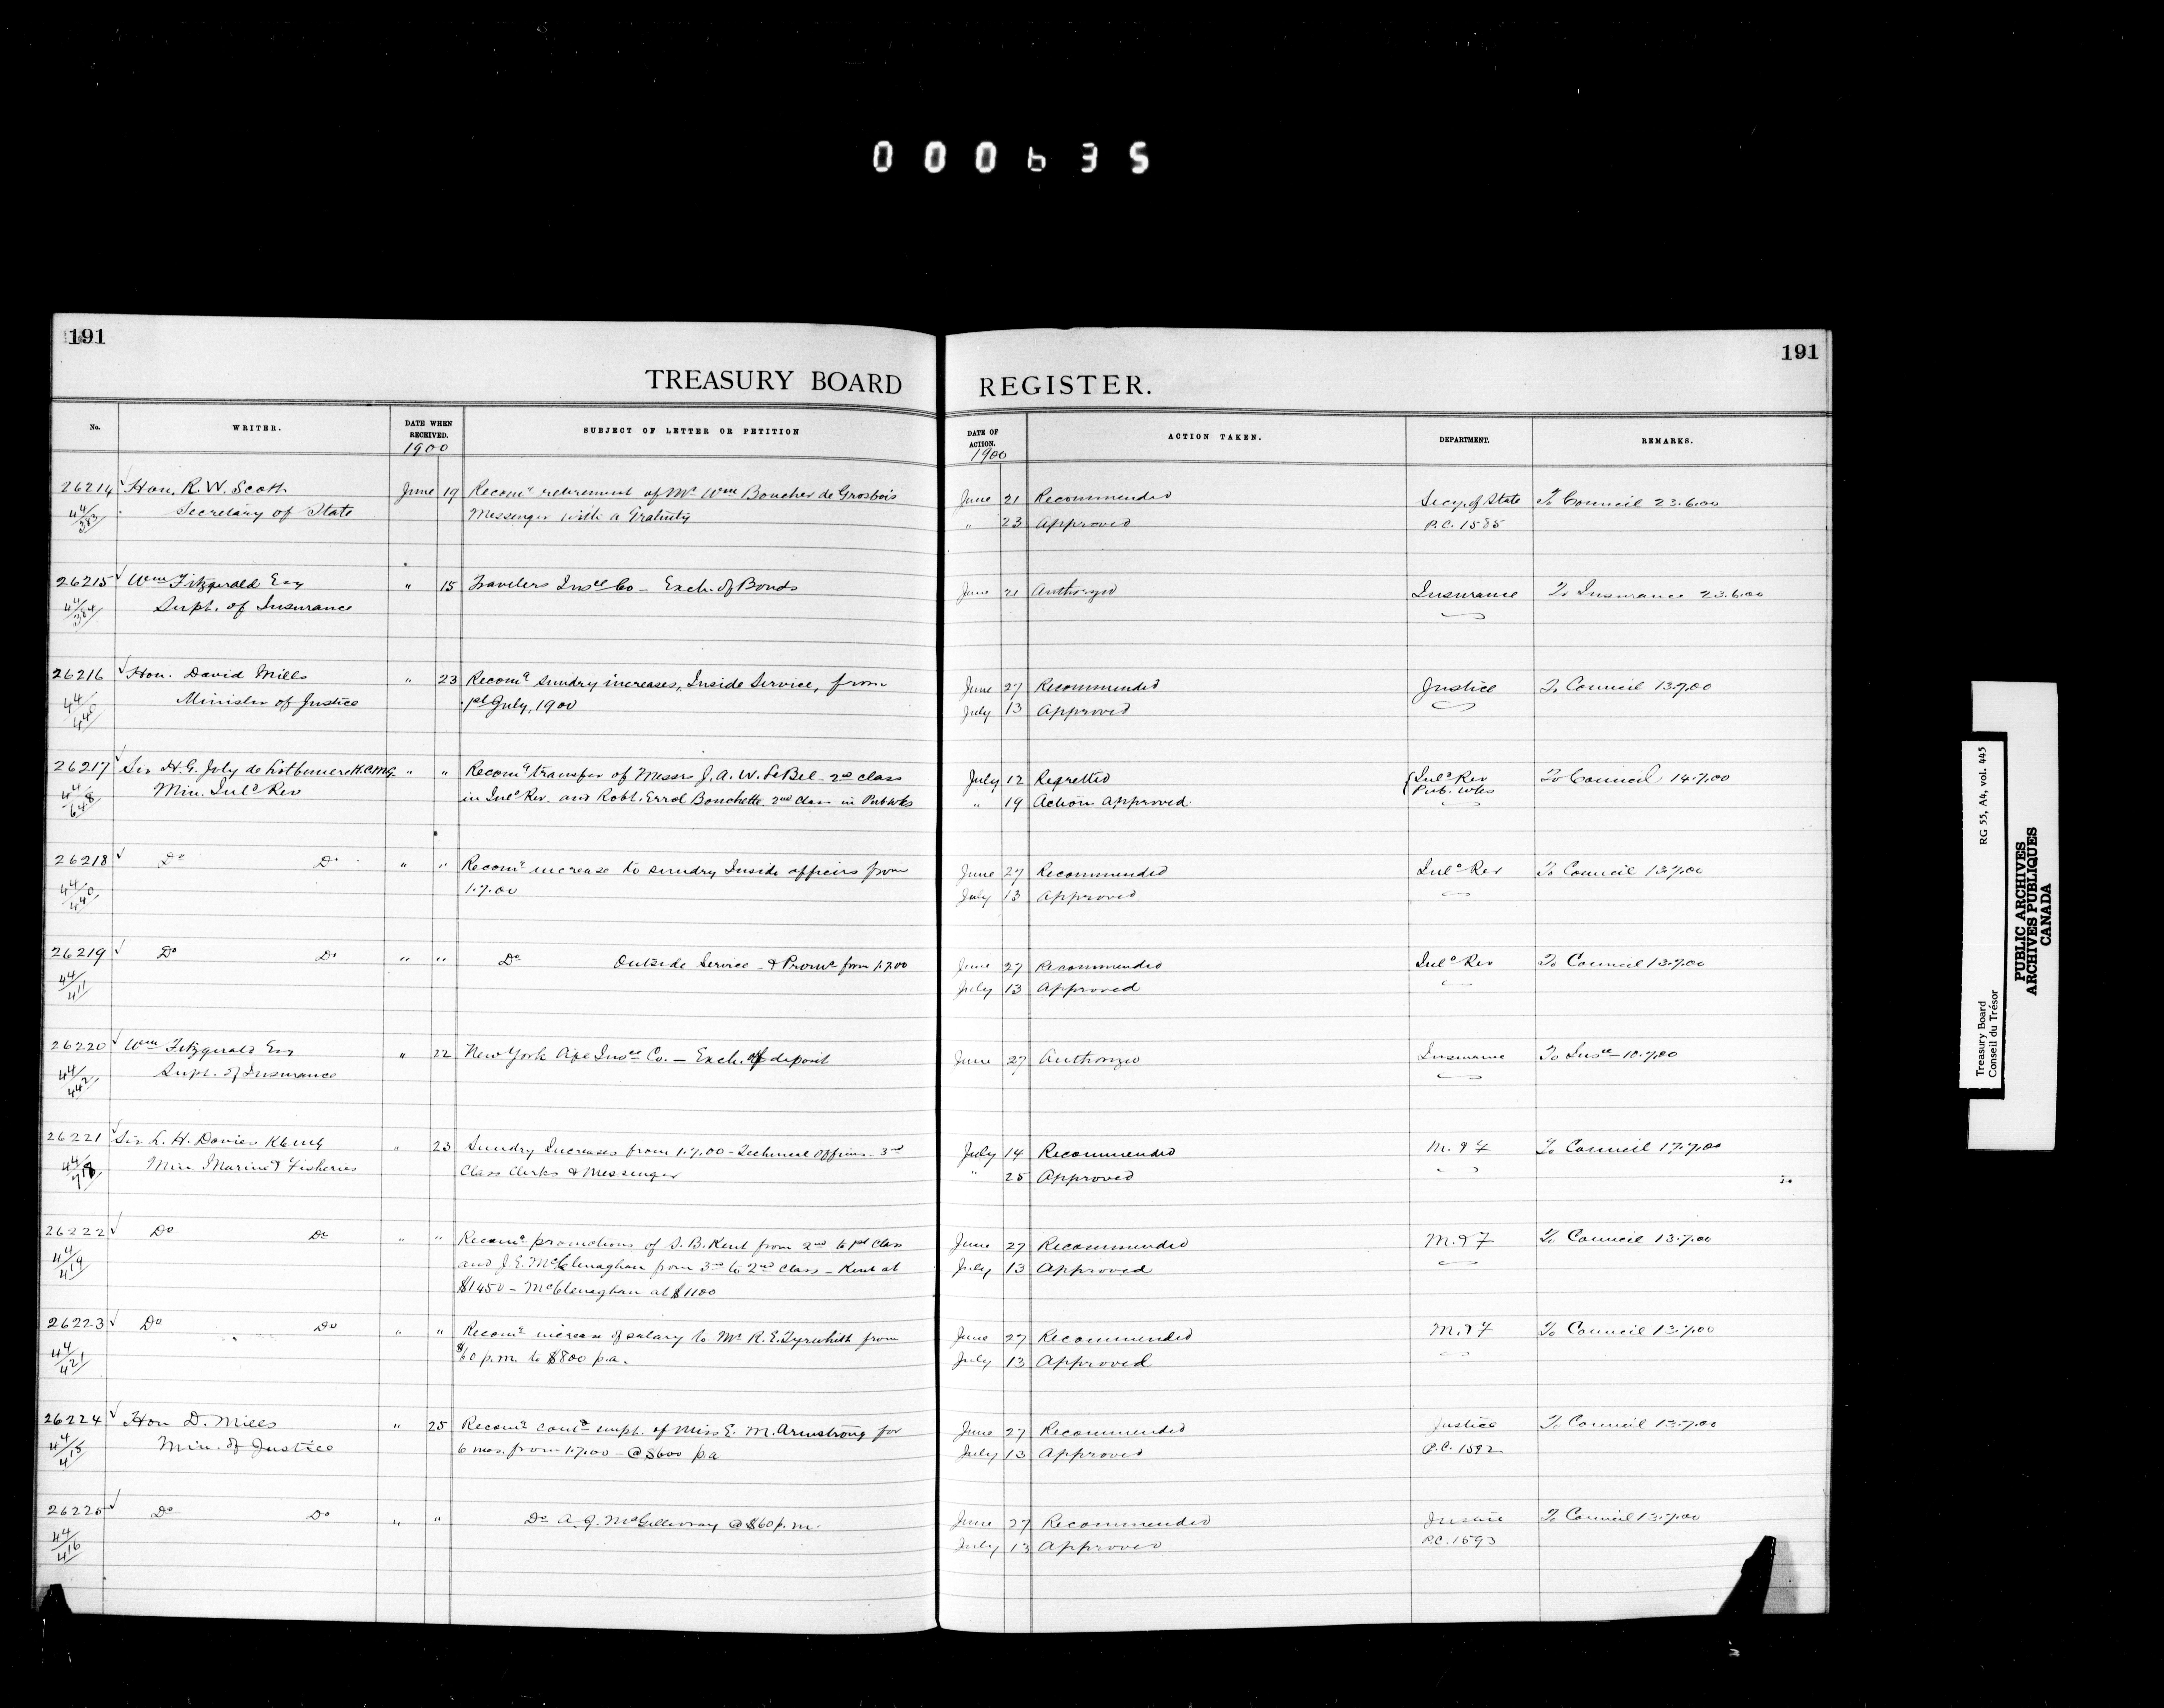 000635
191
191
TREASURY BOARD REGISTER.
No. WRITER. DATE WHEN RECEIVED. 1900 SUBJECT OF LETTER OR PETITION DATE OF ACTION. 1900 ACTION TAKEN. DEPARTMENT. REMARKS.
26214 Hon. R. W. Scott June 19 Recomg retirement of Mr Wm Boucher de Grosbois June 21 Recommended Secy. of State To Council 23.6.00
44/383 Secretary of State Messenger with a Gratuity " 23 Approved P.C. 1585
26215 Wm Fitzgerald Esq " 15 Travelers Insce Co - Exch. of Bonds June 21 Authorized Insurance To Insurance 23.6.00
44/384 Supt. of Insurance
26216 Hon. David Mills " 23 Recomg sundry increases, Inside Service, from June 27 Recommended Justice To Council 13.7.00
44/440 Minister of Justice 1st July, 1900 July 13 Approved
26217 Sir H. G. Joly de Lotbiniere K.C.M.G. " " Recomg transfer of Messrs J. A. W. LeBel - 2nd class July 12 Regretted Inld Rev To Council 14.7.00
Min. Inld Rev in Inld Rev. and Robt. Errol Bouchette 2nd Class in Pub Wks " 19 Action approved Pub. Wks
26218 Do Do " " Recomg increase to sundry Inside officers from June 27 Recommended Inld Rev To Council 13.7.00
1.7.00 July 13 Approved
26219 Do Do " " Do Outside Service - & Promn from 1.7.00 June 27 Recommended Inld Rev To Council 13.7.00
44/411 July 13 Approved
26220 Wm Fitzgerald Esq " 22 New York Life Insce Co. - Exch. of deposit June 27 Authorized Insurance To Insce - 10.7.00
44/442 Supt. of Insurance
26221 Sir L. H. Davies KCMG " 23 Sundry Increases from 1.7.00 - Technical Officers - 3rd July 14 Recommended M. & F To Council 17.7.00
Min. Marine & Fisheries Class Clerks & Messenger " 25 Approved
26222 Do Do " " Recomg promotions of S. B. Kent from 2nd to 1st Class June 27 Recommended M. & F To Council 13.7.00
44/419 and J. E. McClenaghan from 3rd to 2nd Class - Kent at July 13 Approved
$1450 - McClenaghan at $1100
26223 Do Do " " Recomg increase of salary to Mr R. E. Tyrwhitt from June 27 Recommended M. & F To Council 13.7.00
44/421 $60 p.m. to $800 p.a. July 13 Approved
26224 Hon D. Mills " 25 Recomg contd empt. of Miss E. M. Armstrong for June 27 Recommended Justice To Council 13.7.00
44/415 Min. of Justice 6 mos. from 1.7.00 - @ $600 p.a July 13 Approved P.C. 1592
26225 Do Do " " Do A. J. McGillivray @ $60 p.m. June 27 Recommended Justice To Council 13.7.00
44/416 July 13 Approved P.C. 1593
Treasury Board
Conseil du Trésor
RG 55, A4, vol. 445
PUBLIC ARCHIVES
ARCHIVES PUBLIQUES
CANADA